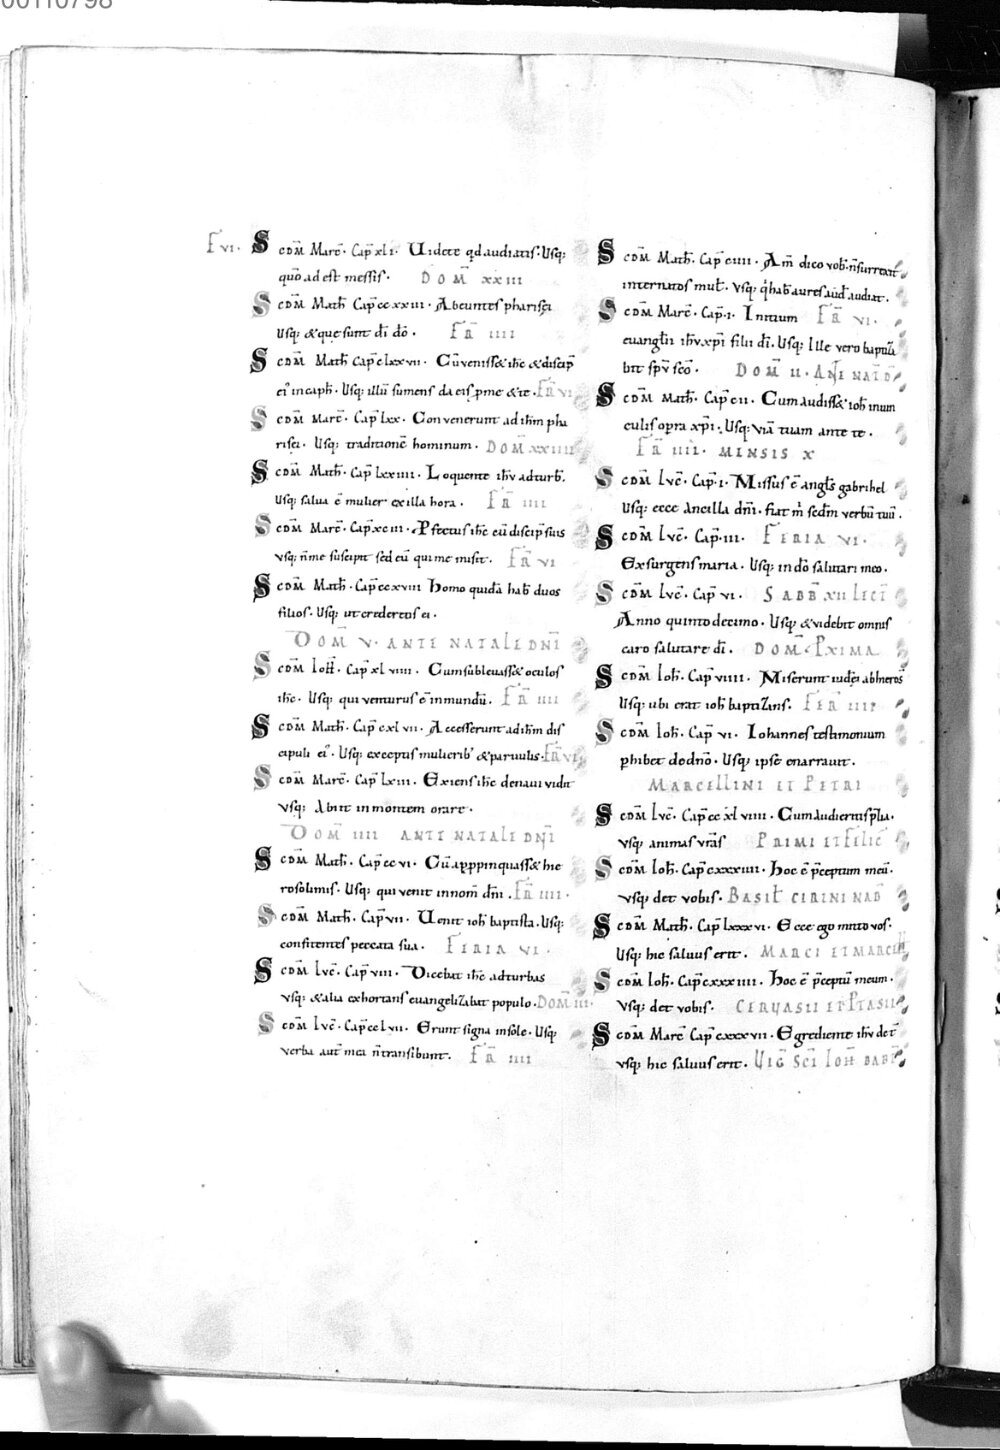 00110798
F̄ VI. SCDM̄ Marc̄. Cap̄ xl i. Uidete qd audiatis. Usq;
quō ad est messis. DOM̄ XXIII
SCDM̄ Math̄ Cap̄ cc xx iii. Abeuntes pharisęi
Usq; & que sunt dī dō. FR̄ IIII
SCDM̄ Math̄ Cap̄ c lxx vii. Cū veniss& ihc̄ & discip̄
ei' in caph̄. Usq; illū sumens da eis ꝑ me & te. FR̄ VI
SCDM̄ Marc̄. Cap̄ lxx. Convenerunt ad ihm̄ pha
risęi. Usq; traditionē hominum. DOM̄ XXIIII
SCDM̄ Math̄. Cap̄ lxx iiii. Loquente ihū ad turb̄.
Usq; salua ē mulier ex illa hora. FR̄ IIII
SCDM̄ Marc̄. Cap̄ xc iii. Pfectus ihc̄ cū discip̄ suis
vsq; n̄ me suscipit sed eū qui me misit. FR̄ VI
SCDM̄ Math̄. Cap̄ cc xviii Homo quidā hab̄ duos
filios. Usq; ut crederetis ei.
DOM̄ V. ANTE NATALE DN̄I
SCDM̄ Ioh̄. Cap̄ xl viiii. Cum subleuass& oculos
ihc̄. Usq; qui venturus ē in mundū. FR̄ IIII
SCDM̄ Math̄. Cap̄ cxl vii. Accesserunt ad ihm̄ dis
cipuli ei'. Usq; exceptis mulierib' & paruulis. FR̄ VI
SCDM̄ Marc̄. Cap̄ lxiii. Exiens ihc̄ de naui vidit
vsq; Abiit in montem orare.
DOM̄ IIII ANTE NATALE DN̄I
SCDM̄ Math̄. Cap̄ cc vi. Cū appppinquass& hie
rosolimis. Usq; qui venit in nom̄ dn̄i. FR̄ IIII.
SCDM̄ Math̄. Cap̄ vii. Uenit ioh̄ baptista. Usq;
confitentes peccata sua. FERIA VI.
SCDM̄ Lvc̄. Cap̄ viii. Dicebat ihc̄ ad turbas
vsq; & alia exhortans euangelizabat populo. DOM̄ III.
SCDM̄ Lvc̄. Cap̄ cc l vii. Erunt signa in sole. Usq;
verba aut̄ mea n̄ transibunt. FR̄ IIII
SCDM̄ Math̄. Cap̄ c iiii. Am̄ dico vob̄. n̄ surrexit
inter natos mul̄. Vsq; q̇ hab̄ aures aud̄ audiat.
SCDM̄ Marc̄. Cap̄. i. Initium FR̄ VI.
euangl̄ii ihū xp̄i filii dī. Usq; Ille vero baptiza
bit sp̄v sc̄o. DOM̄ II. ANT̄ NAT̄ D̄
SCDM̄ Math̄. Cap̄ cii. Cum audiss& ioh̄ in uin
culis opra xp̄i. Usq; viā tuam ante te.
FR̄ IIII. MENSIS X
SCDM̄ Lvc̄. Cap̄. i. Missus ē angl̄s gabrihel
Usq; ecce Ancilla dn̄i. fiat m̄ sedm̄ verbū tuū.
SCDM̄ Lvc̄. Cap̄. iii. FERIA VI.
Exsurgens maria. Usq; in dō salutari meo.
SCDM̄ Lvc̄. Cap̄ vi. SABB̄ XII LECT̄
Anno quinto decimo. Usq; & videbit omnis
caro salutare dī. DOM̄. PXIMA
SCDM̄ Ioh̄. Cap̄ viiii. Miserunt iudęi ab hieros̄
Usq; ubi erat ioh̄ baptizans. FER̄ IIII
SCDM̄ Ioh̄. Cap̄ vi. Iohannes testimonium
phibet de dn̄o. Usq; ipse enarrauit.
MARCELLINI ET PETRI
SCDM̄ Lvc̄. Cap̄ cc xl viiii. Cum audieritis plia.
vsq; animas vrās PRIMI ET FELIC̄
SCDM̄ Ioh̄. Cap̄ cxxx iiii. Hoc ē pceptum meū.
vsq; det vobis. BASIL̄ CIRINI NAB̄
SCDM̄ Math̄. Cap̄ lxxx vi. Ecce ego mitto vos.
Usq; hic saluus erit. MARCI ET MARCELL̄
SCDM̄ Ioh̄. Cap̄ cxxx iiii. Hoc ē pceptū meum.
Vsq; det vobis. GERUASII ET PTASII
SCDM̄ Marc̄ Cap̄ cxxx vii. Egrediente ihū de t̄
vsq; hic saluus erit. UIḠ SC̄I IOH̄ BAPT̄